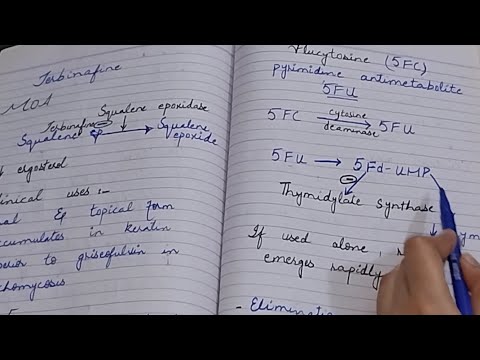 Terbinafine
MOA
Squalene epoxidase
Terbinafine
Squalene → Squalene
epoxide
↓ ergosterol
linical uses :-
al & topical form
ccumulates in keratin
erior to griseofulvin in
chomycosis
Flucytosine (5FC)
pyrimidine antimetabolite
5FU
5FC cytosine → 5FU
deaminase
5FU → 5Fd-UMP
Thymidylate synthase
If used alone,
emerges rapidly
- Elimination